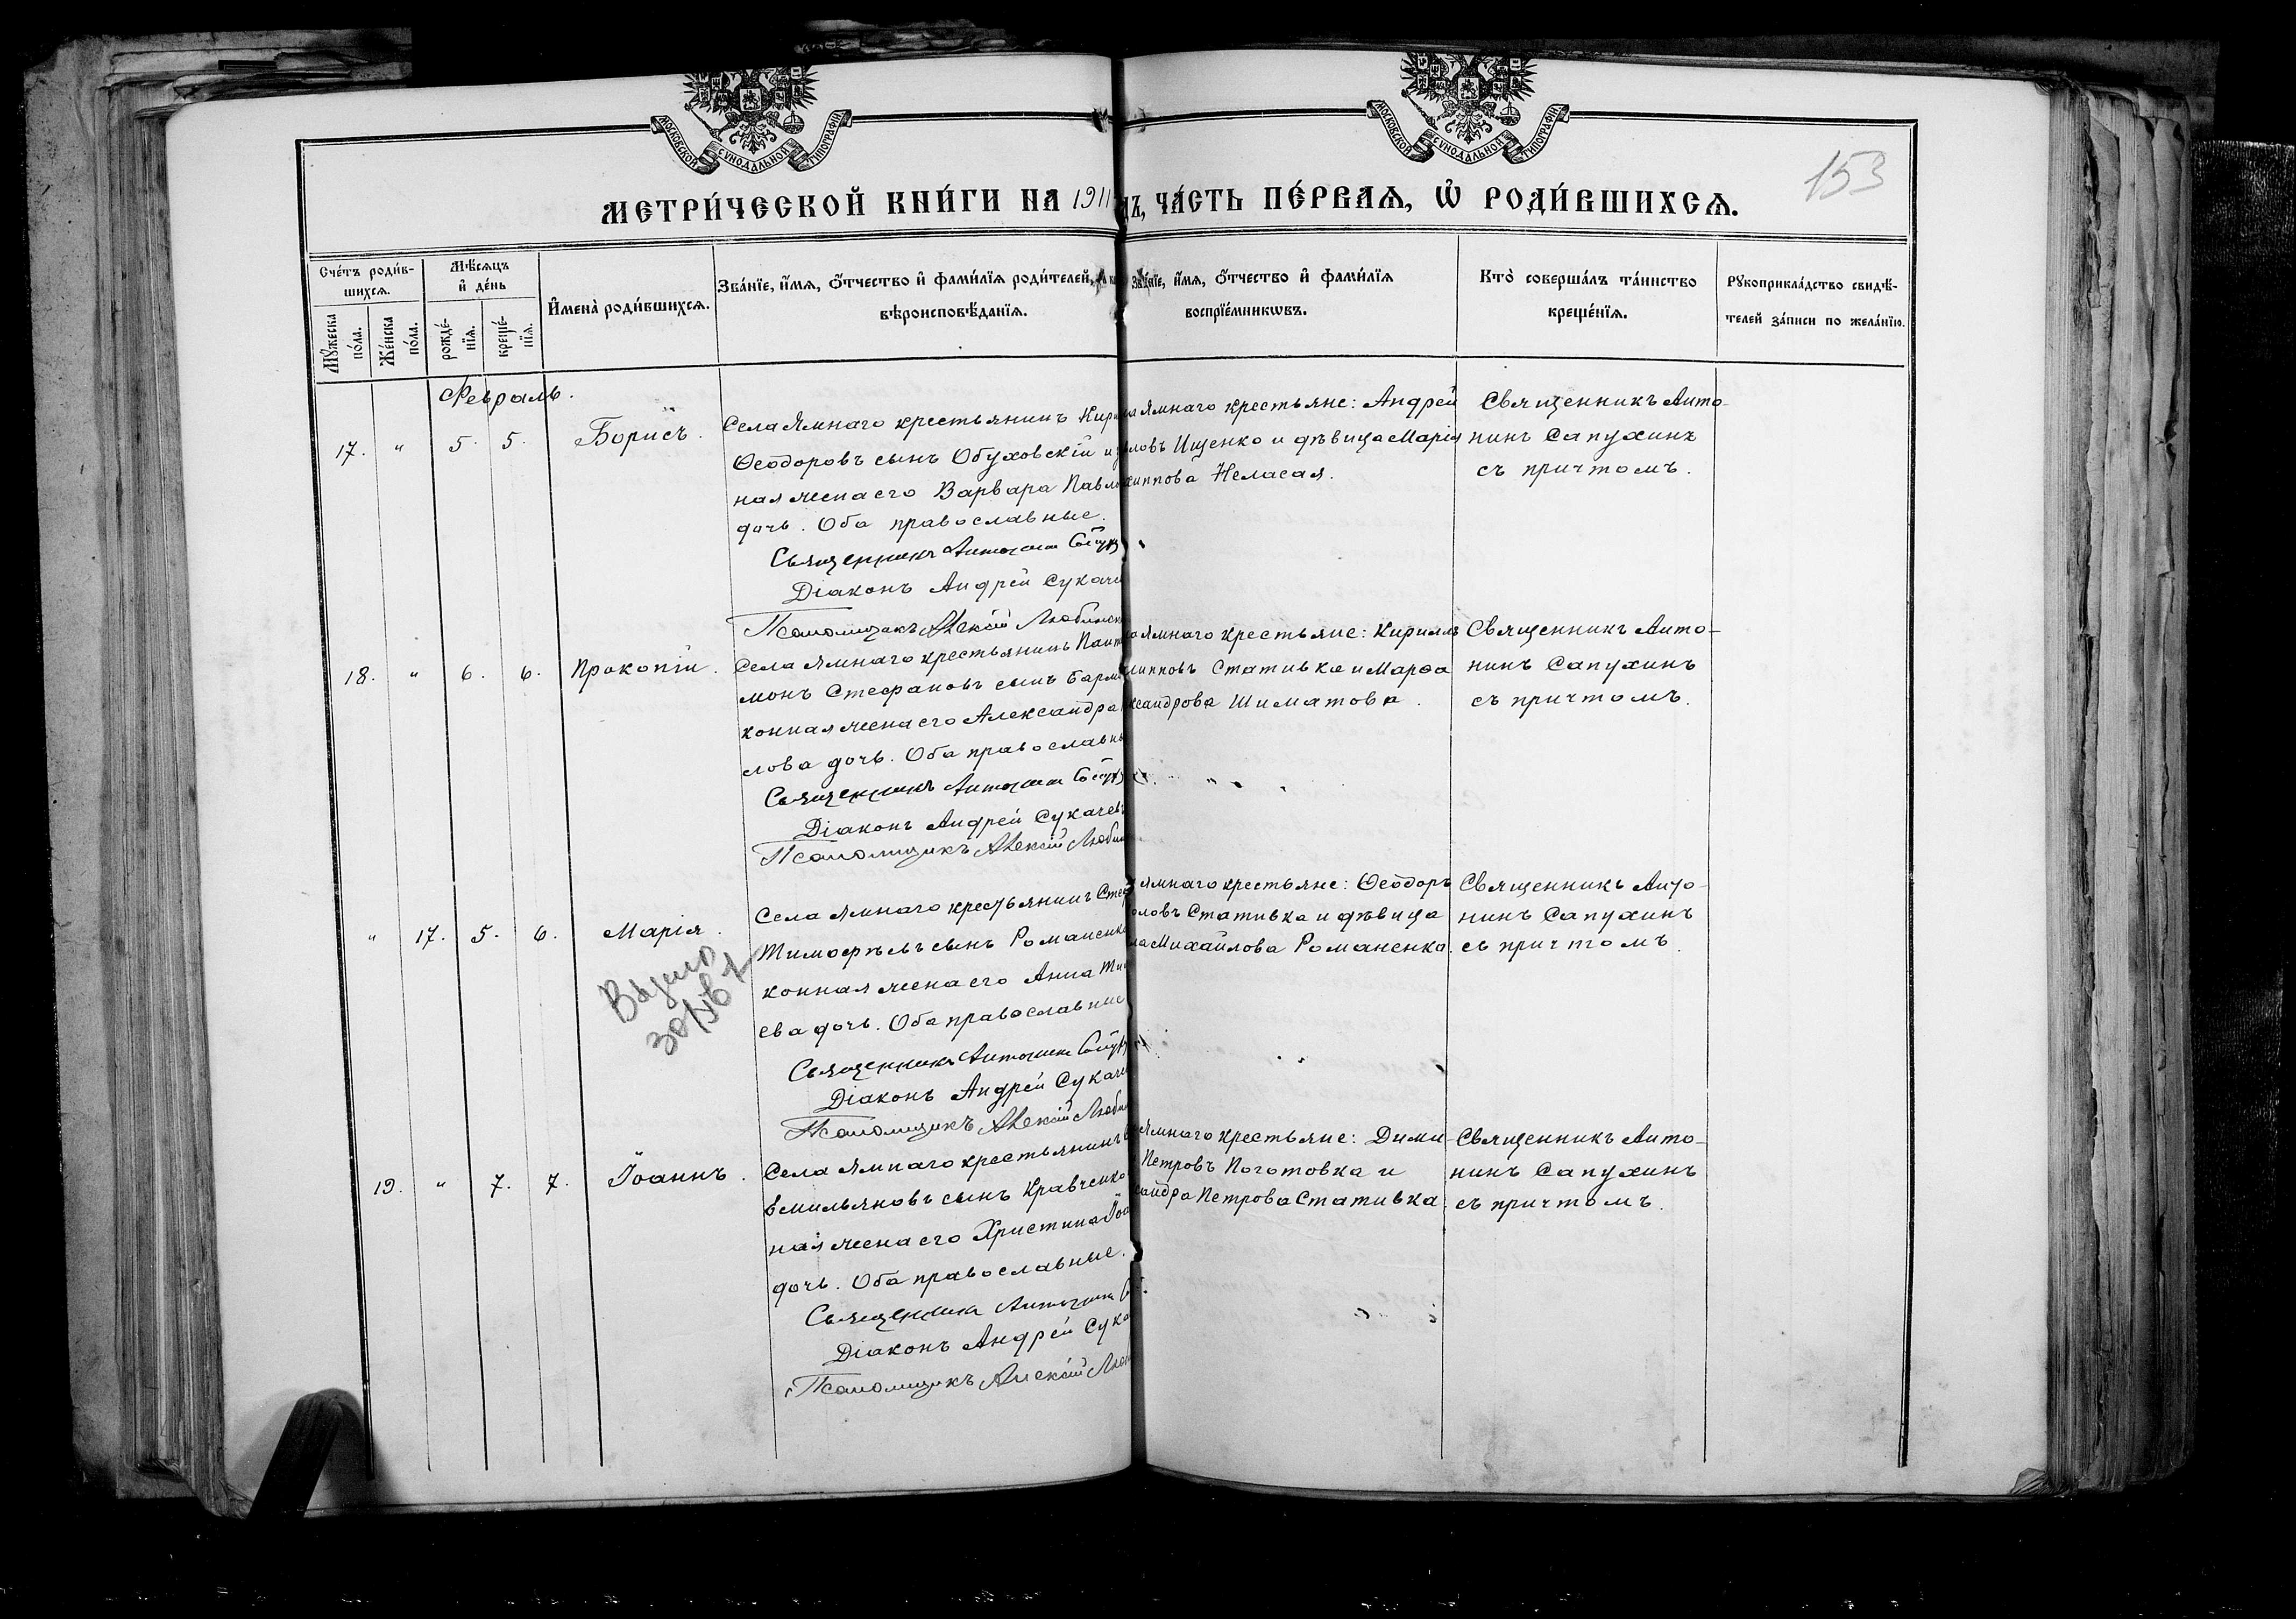 МОСКОВСКОЙ СѴНОДАЛЬНОЙ ТИПОГРАФІИ
МОСКОВСКОЙ СѴНОДАЛЬНОЙ ТИПОГРАФІИ
153
МЕТРИ́ЧЕСКОЙ КНИ́ГИ НА 1911
ЧА́СТЬ ПЕ́РВАѦ, Ѡ҆ РОДИ́ВШИХСѦ.
Сче́тъ роди́в-
шихсѧ.
Мꙋ́жеска по́ла.
Же́нска по́ла.
Мѣ́сѧцъ
и҆ де́нь
рожде́-
нїѧ.
креще́-
нїѧ.
И҆мена̀ роди́вшихсѧ.
Зва́нїе, и҆́мѧ, ѻ҆́тчество и҆ фами́лїѧ роди́телей,
вѣроисповѣ́данїѧ.
Зва́нїе, и҆́мѧ, ѻ҆́тчество и҆ фами́лїѧ
воспрїе́мникѡвъ.
Кто̀ соверша́лъ та́инство
креще́нїѧ.
Рꙋкоприкла́дство свидѣ́-
телей за́писи по жела́нїю.
Февраль.
17. " 5. 5. Борисъ.
Села Ямнаго крестьянинъ Кир
Ѳеодоровъ сынъ Обуховскій и з
ная жена его Варвара Павло
дочь. Оба православные.
Священникъ Антонин Сапух
Діаконъ Андрей Сукаче
Псаломщикъ Алексій Любинск
Ямнаго крестьяне: Андрей
ловъ Ищенко и дѣвица Марія
иппова Неласая.
Священникъ Анто-
нинъ Сапухинъ
съ причтомъ.
18. " 6. 6. Прокопій.
Села Ямнаго крестьянинъ Пант
монъ Стефановъ сынъ Барм
конная жена его Александра
лова дочь. Оба православны
Священникъ Антонин Сапух
Діаконъ Андрей Сукачевъ
Псаломщикъ Алексій Любин
Ямнаго крестьяне: Кириллъ
липповъ Стативка и Марѳа
ксандрова Шиматова.
Священникъ Анто-
нинъ Сапухинъ
съ причтомъ.
" 17. 5. 6. Марія.
30/
Села Ямнаго крестьянинъ Стеф
Тимофѣевъ сынъ Романенко
конная жена его Анна Тим
ева дочь. Оба православные
Священникъ Антонин Сапух
Діаконъ Андрей Сукаче
Псаломщикъ Алексій Любин
Ямнаго крестьяне: Ѳеодоръ
ловъ Стативка и дѣвица
на Михайлова Романенко.
Священникъ Анто-
нинъ Сапухинъ
съ причтомъ.
19. " 7. 7. Іоаннъ.
Села Ямнаго крестьянинъ
Емильяновъ сынъ Кравченко
ная жена его Христина Іоа
дочь. Оба православные.
Священникъ Антонин
Діаконъ Андрей Сука
Псаломщикъ Алексій Люб
Ямнаго крестьяне: Дими-
Петровъ Поготовка и
сандра Петрова Стативка.
Священникъ Анто-
нинъ Сапухинъ
съ причтомъ.